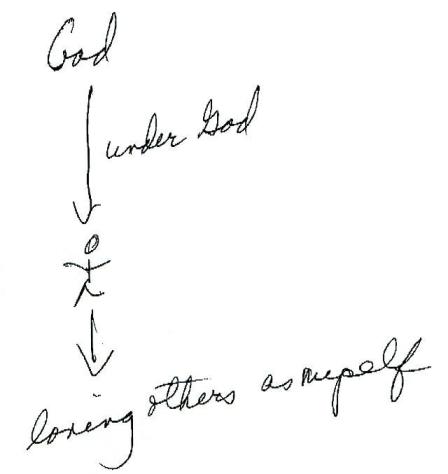 God
under God
loving others as myself